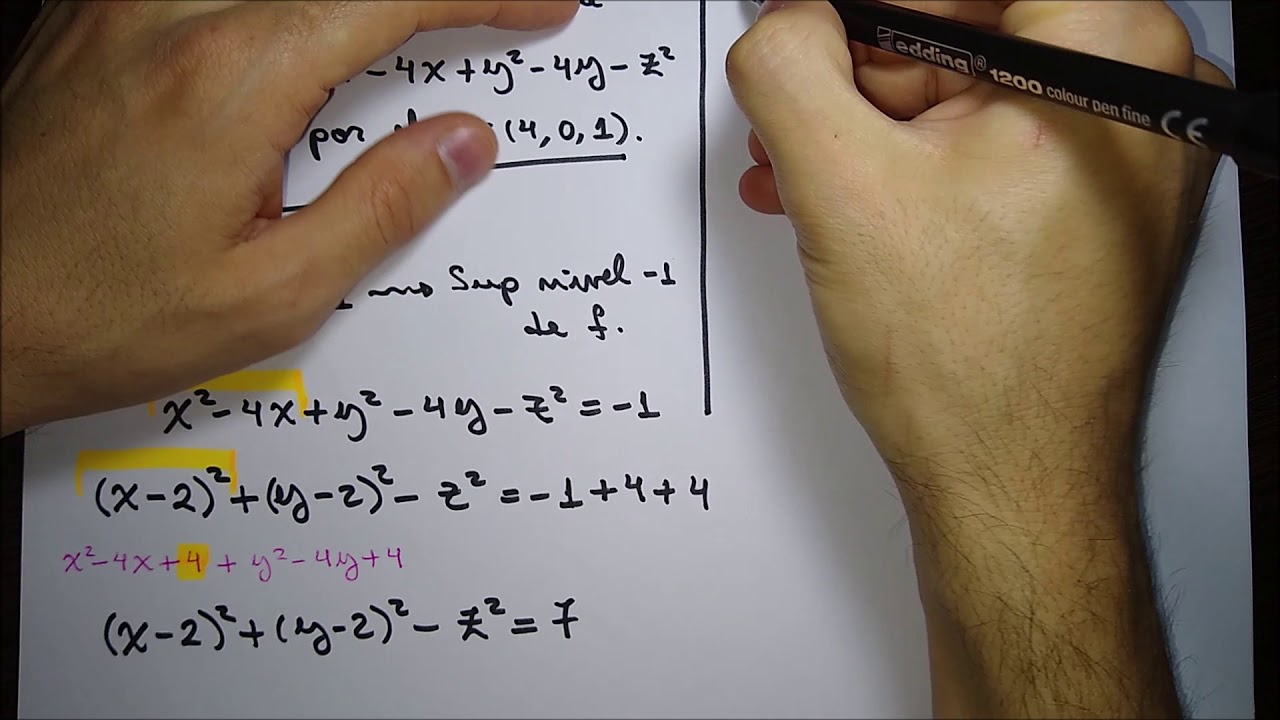 - 4x + y² - 4y - z²
por (4, 0, 1).
Sup nivel -1
de f.
x² - 4x + y² - 4y - z² = -1
(x-2)² + (y-2)² - z² = -1 + 4 + 4
x² - 4x + 4 + y² - 4y + 4
(x-2)² + (y-2)² - z² = 7
edding® 1200 colour pen fine CE